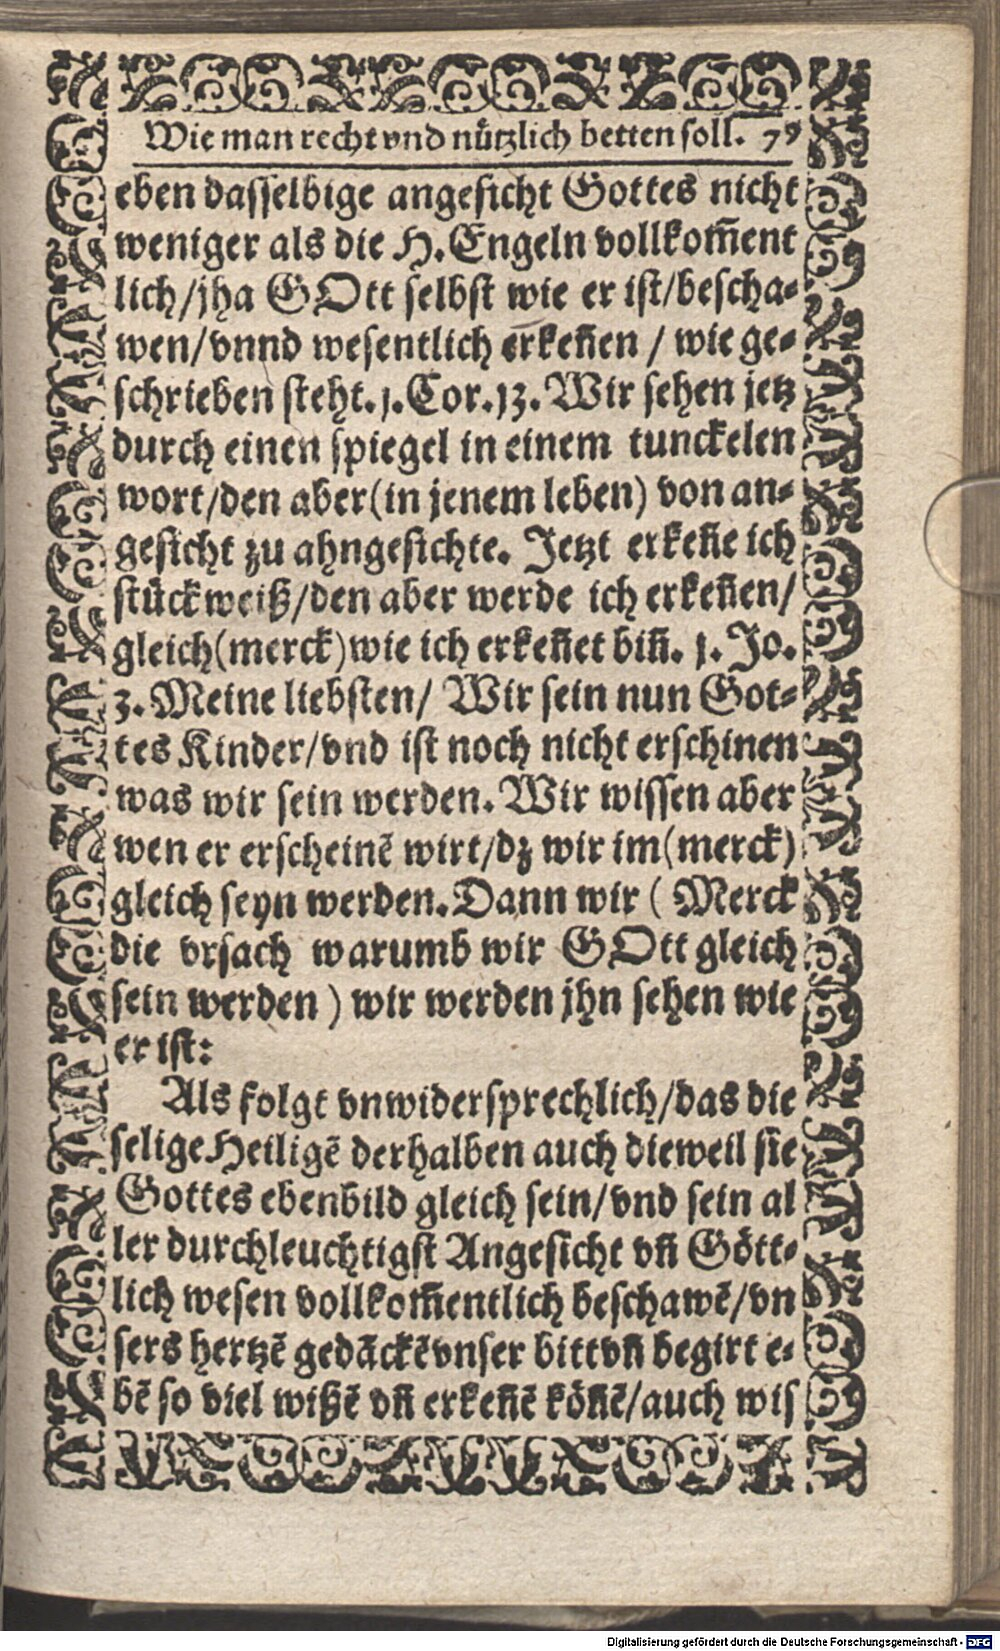 Wie man recht vnd nützlich betten soll. 79
eben dasselbige angesicht Gottes nicht
weniger als die H. Engeln vollkom̃ent
lich/jha GOtt selbst wie er ist/bescha-
wen/vnnd wesentlich erkeñen / wie ge-
schrieben steht. 1. Cor. 13. Wir sehen jetz
durch einen spiegel in einem tunckelen
wort/den aber (in jenem leben) von an-
gesicht zu ahngesichte. Jetzt erkeñe ich
stückweiß/den aber werde ich erkeñen/
gleich (merck) wie ich erkeñet biñ. 1. Jo.
3. Meine liebsten/ Wir sein nun Got-
tes Kinder/vnd ist noch nicht erschinen
was wir sein werden. Wir wissen aber
wen er erscheinẽ wirt/dz wir im (merck)
gleich seyn werden. Dann wir ( Merck
die vrsach warumb wir GOtt gleich
sein werden ) wir werden jhn sehen wie
er ist:
Als folgt vnwidersprechlich/das die
selige Heiligẽ derhalben auch dieweil sie
Gottes ebenbild gleich sein/vnd sein al
ler durchleuchtigst Angesicht vñ Gött-
lich wesen vollkom̃entlich beschawẽ/vn
sers hertzẽ gedãckẽ vnser bitt vñ begirt e-
bẽ so viel wißẽ vñ erkeñẽ köñẽ/auch wis
Digitalisierung gefördert durch die Deutsche Forschungsgemeinschaft - DFG